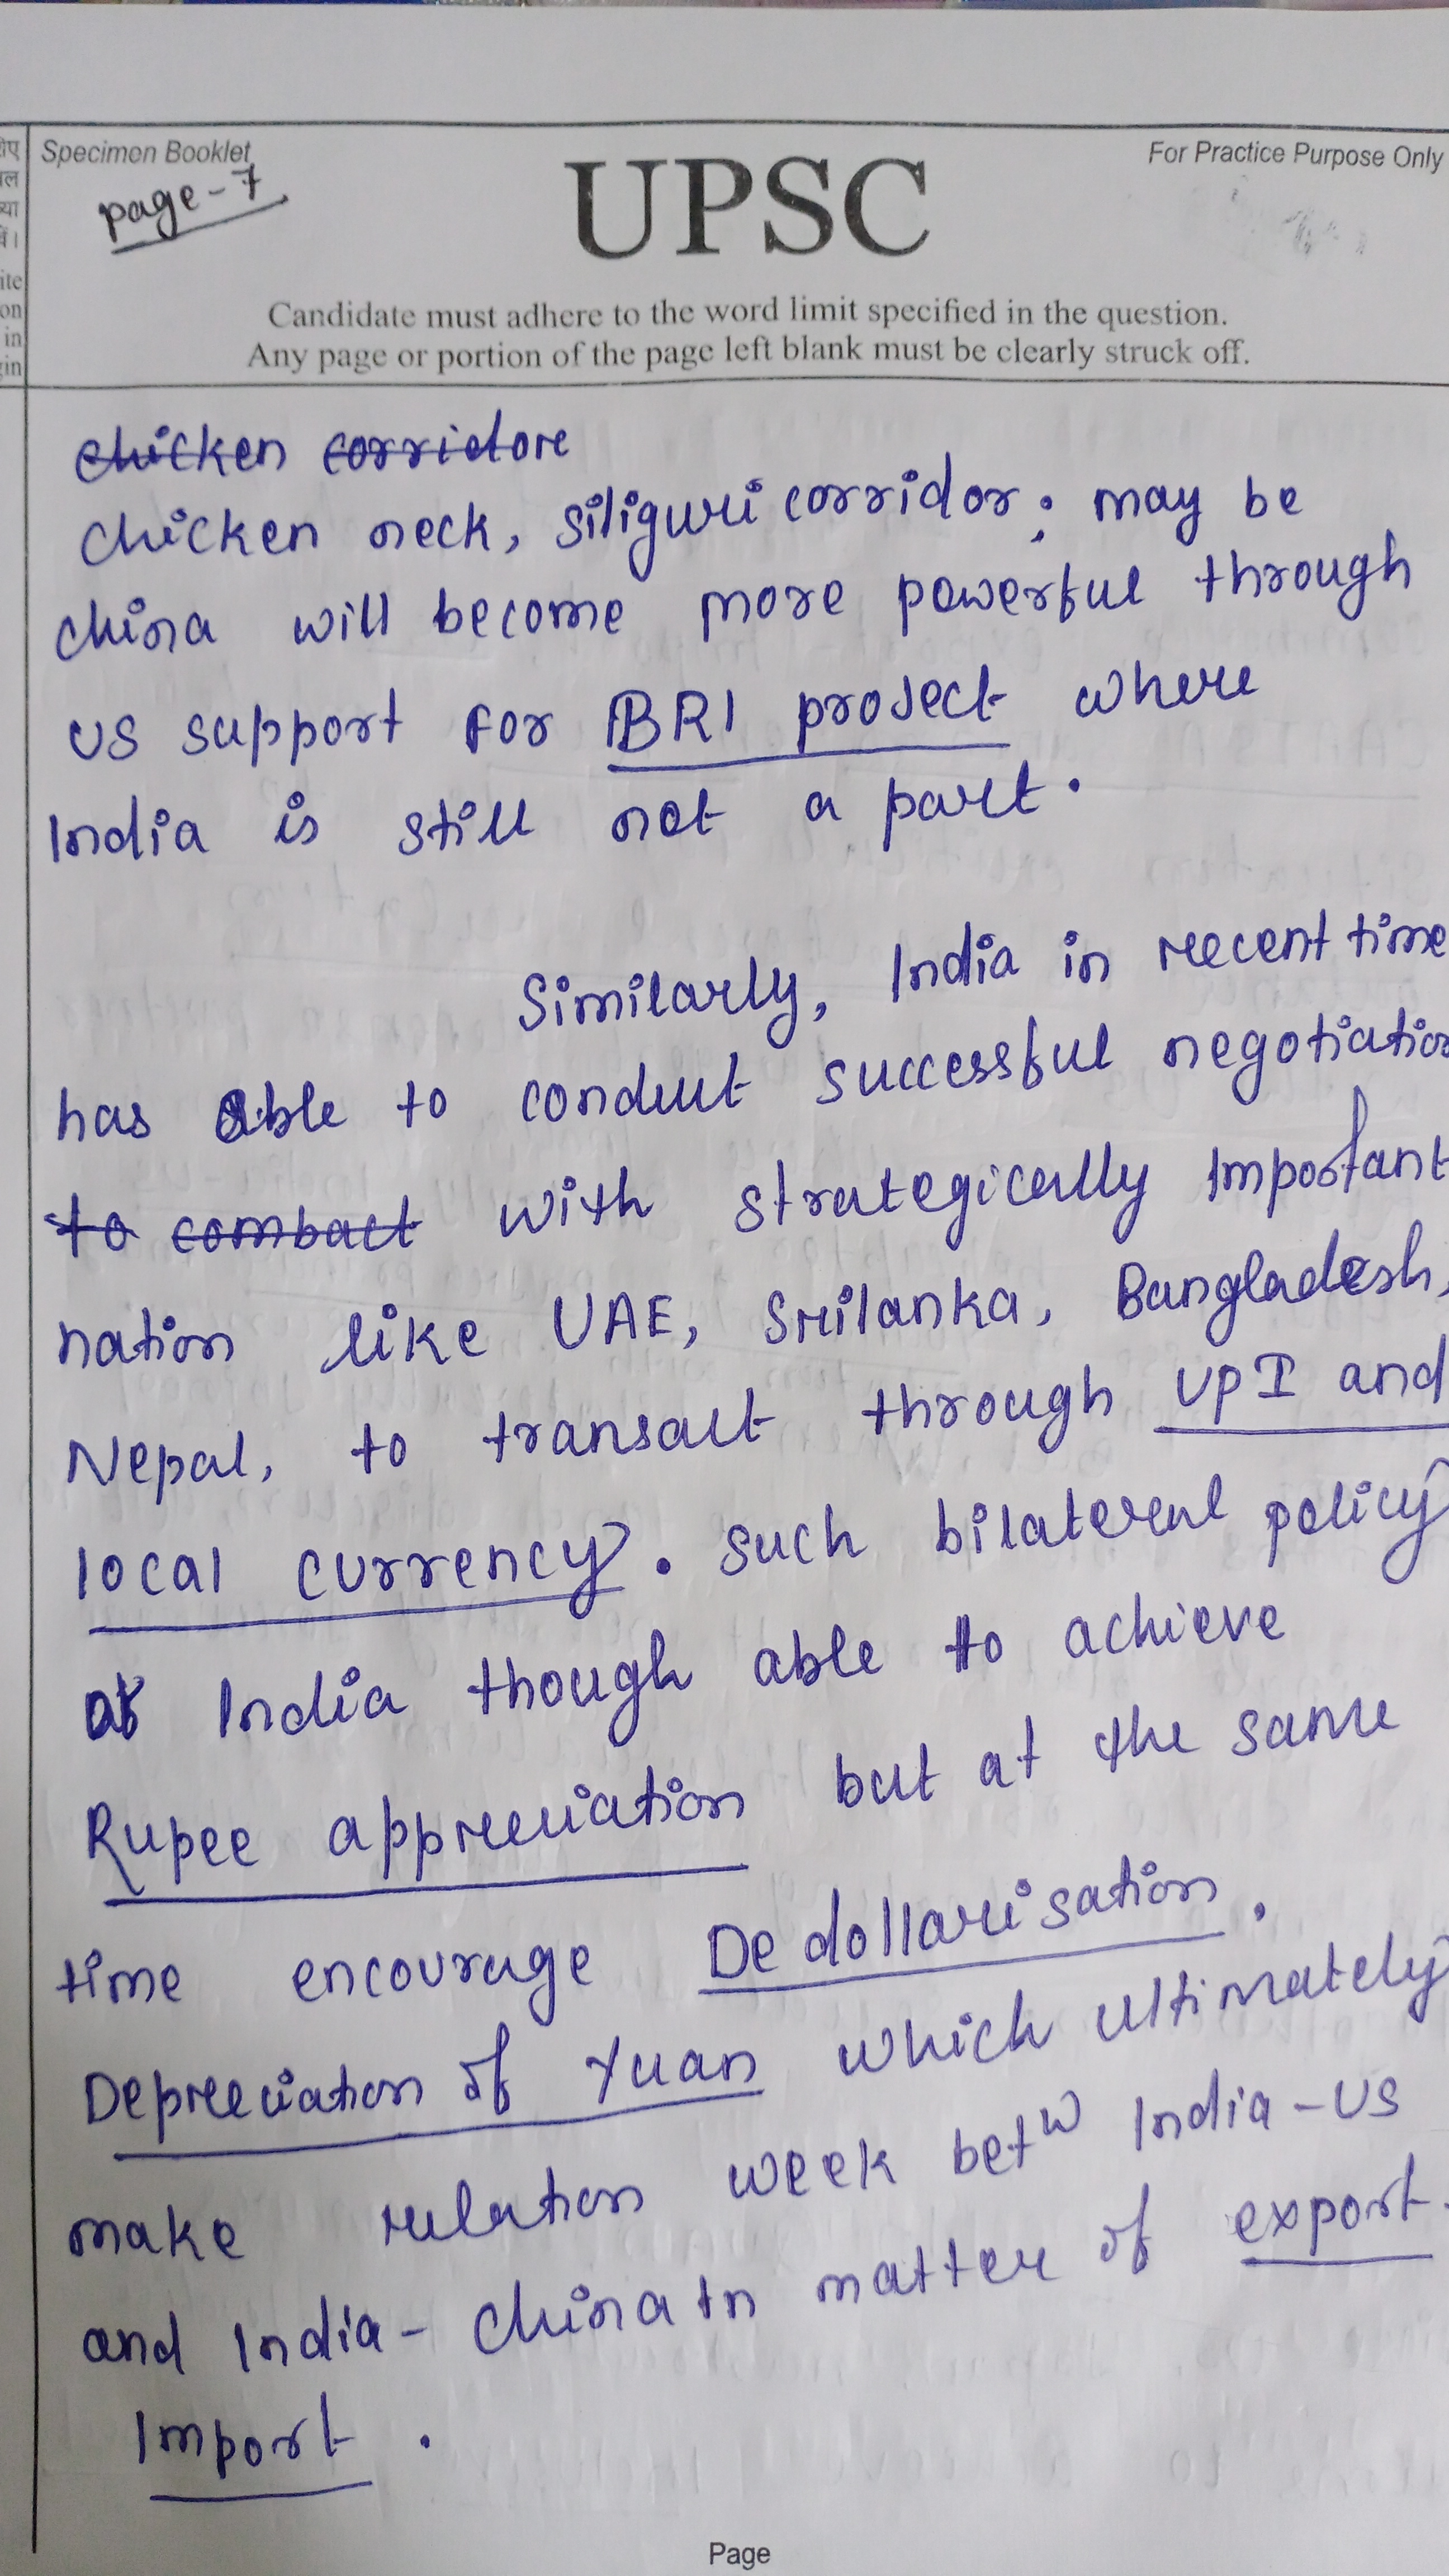 Specimen Booklet
For Practice Purpose Only
page-7
UPSC
Candidate must adhere to the word limit specified in the question.
Any page or portion of the page left blank must be clearly struck off.
ite
on
in
gin
chicken corridore
chicken neck, Siliguri corridor; may be
china will become more powerful through
US support for BRI project where
India is still not a part.
Similarly, India in recent time
has able to conduct successful negotiation
to combact with strategically important
nation like UAE, Srilanka, Bangladesh,
Nepal, to transact through UPI and
local currency. such bilateral policy
of India though able to achieve
Rupee appreciation but at the same
time encourage De dollarisation.
Depreciation of Yuan which ultimately
make relation week betw India-US
and India-China in matter of export
Import.
Page